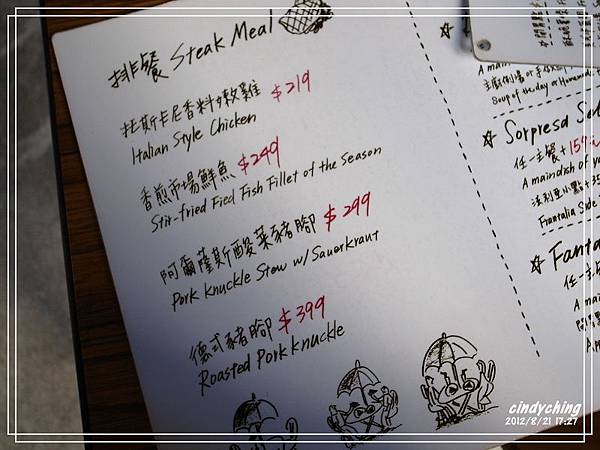 排餐 Steak Meal
托斯卡尼香料嫩雞 $219
Italian Style Chicken
香煎市場鮮魚 $249
Stir-fried Fied Fish Fillet of the Season
阿爾薩斯酸菜豬腳 $299
Pork Knuckle Stew w/ Sauerkraut
德式豬腳 $399
Roasted Pork Knuckle
A main
Soup of the day or Homemade
Sorpresa
任一主餐 +
A maindish of
Frantalia Side
Fanta
任一主
A main
cindyching
2012/8/21 17:27